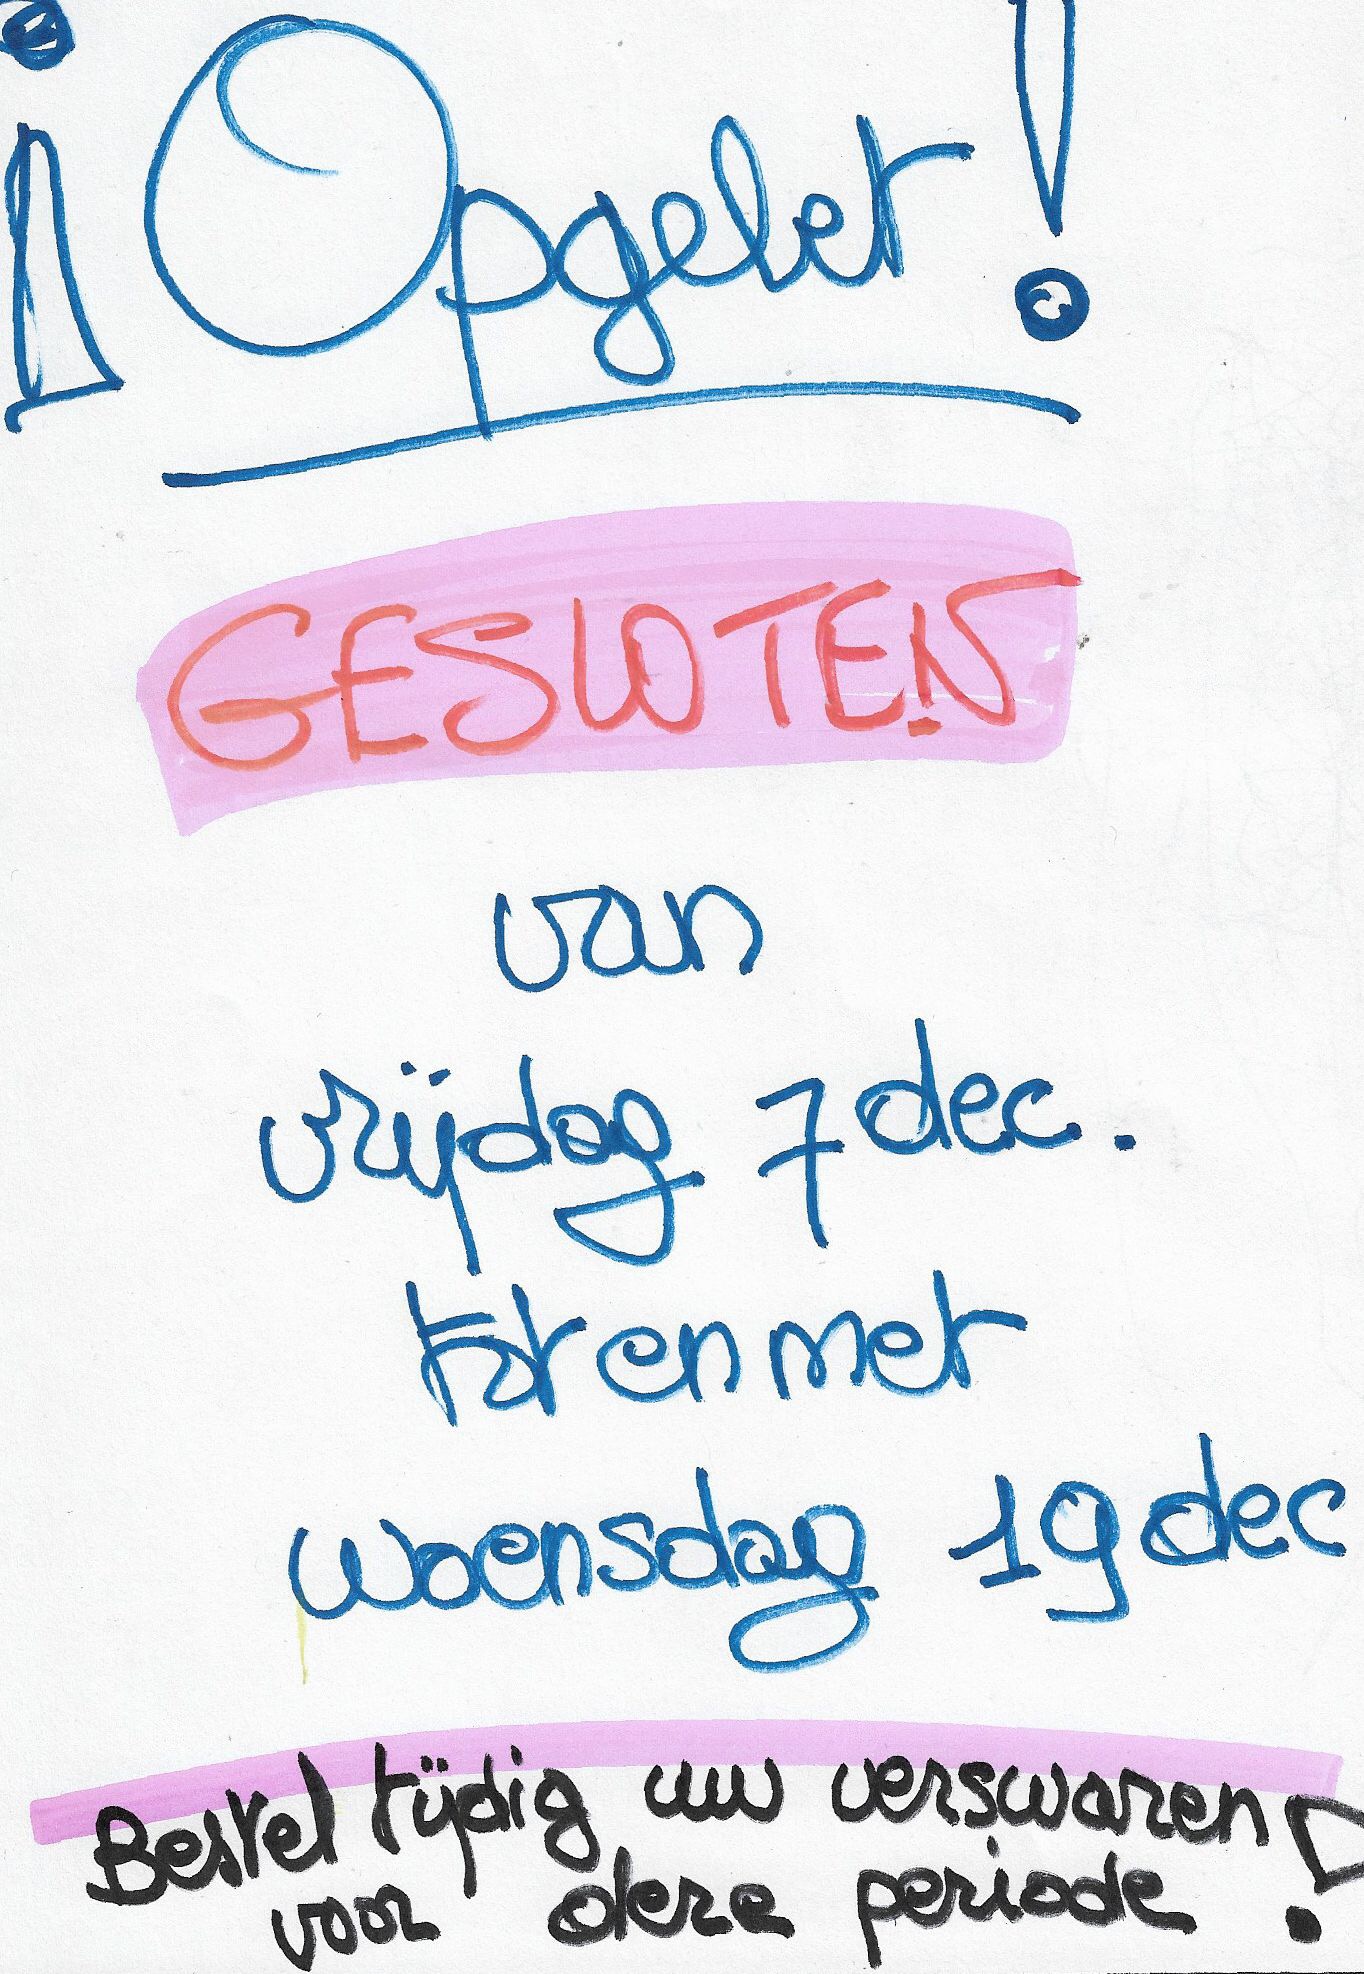 ¡ Opgelet !
GESLOTEN
van
vrijdag 7 dec.
tot en met
woensdag 19 dec
Bestel tijdig uw verswaren !
voor deze periode